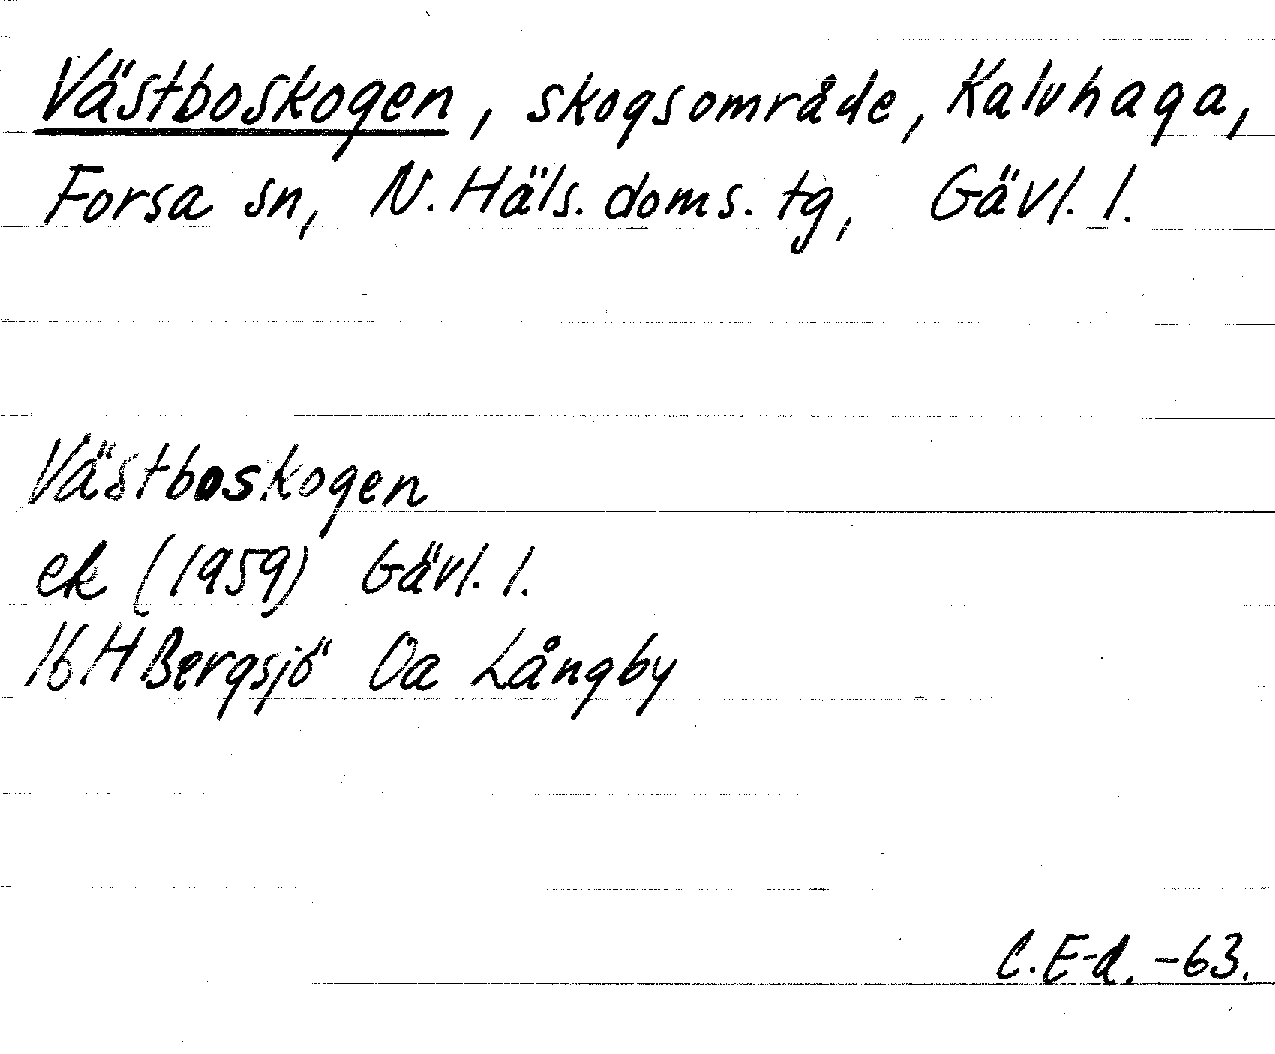 Västboskogen, skogsområde, Kalvhaga,
Forsa sn, N. Häls. doms. tg, Gävl. l.
Västboskogen
ek (1959) Gävl. l.
16H Bergsjö Oa Långby
C. E-d. -63.